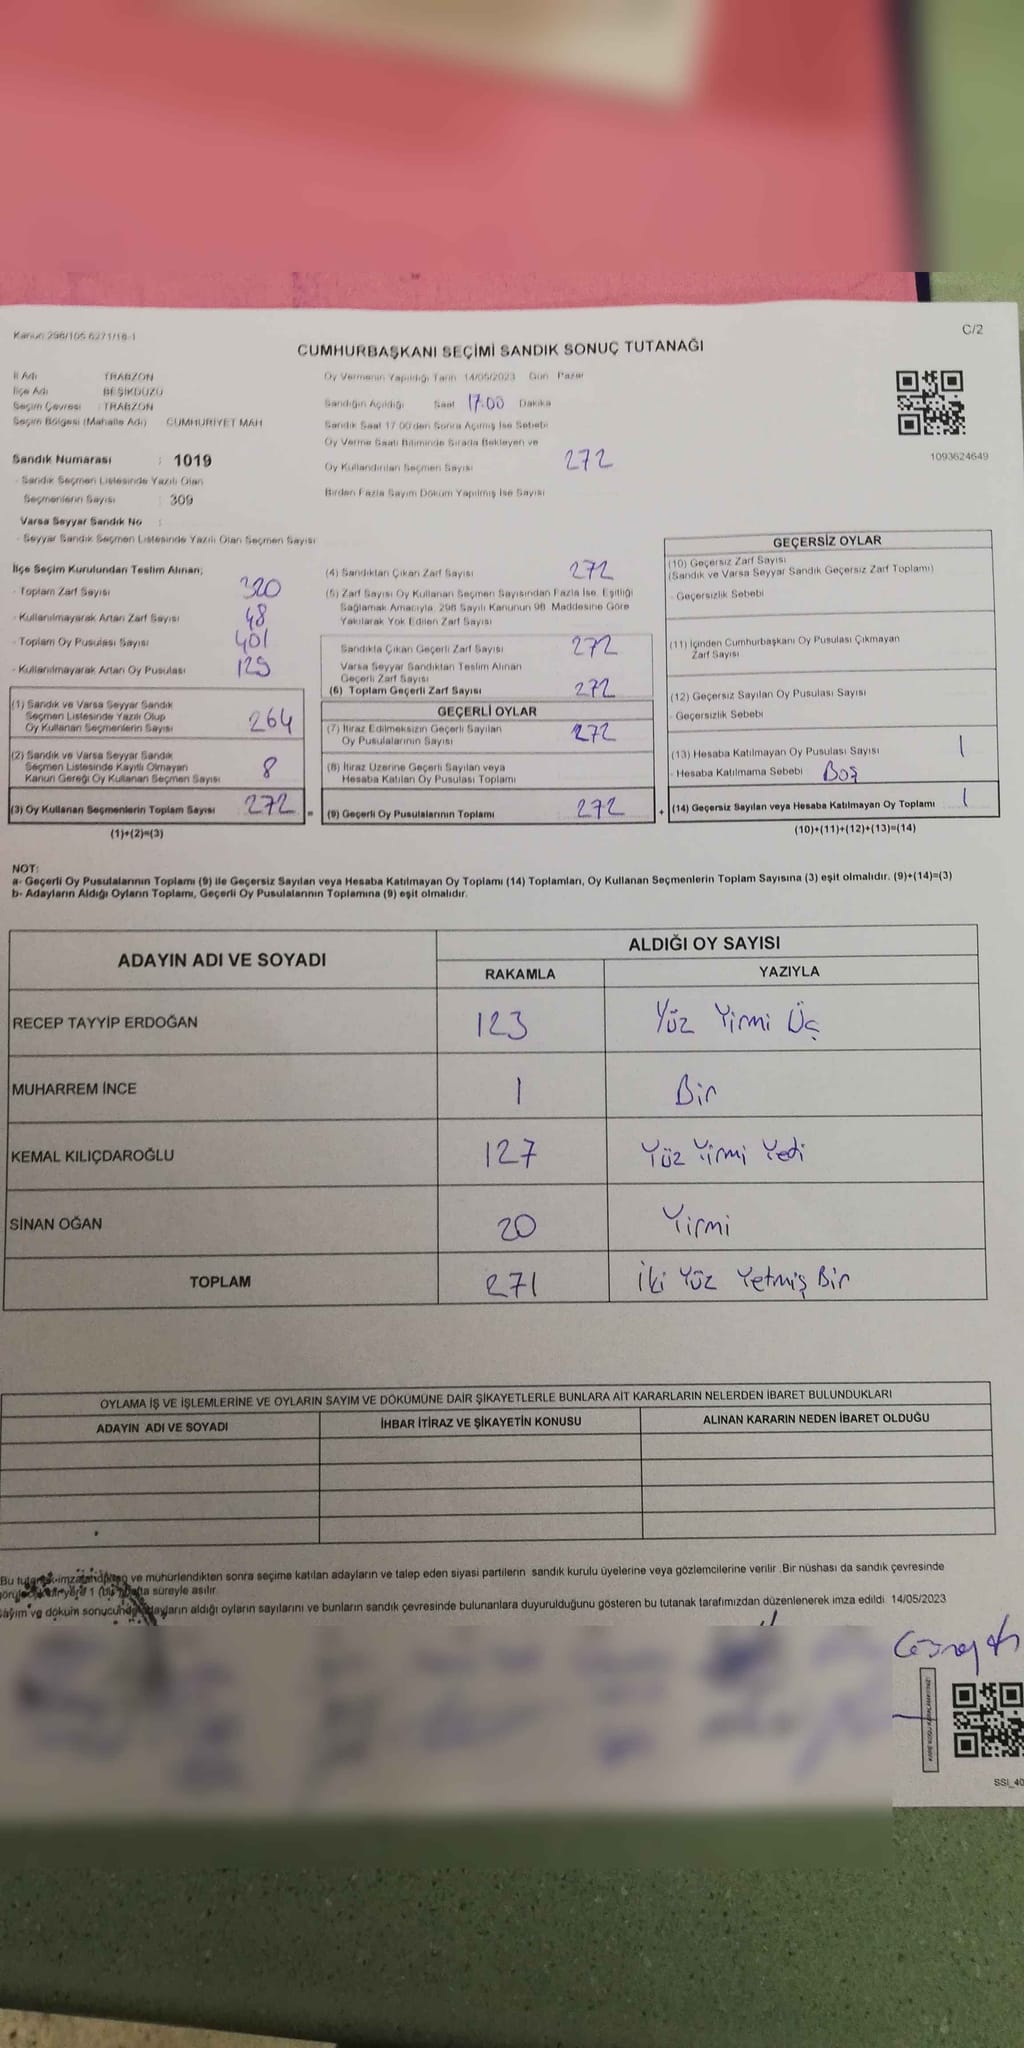 Kanun 298/105 6271/18-1
C/2
CUMHURBAŞKANI SEÇİMİ SANDIK SONUÇ TUTANAĞI
İl Adı TRABZON
İlçe Adı BEŞİKDÜZÜ
Seçim Çevresi : TRABZON
Seçim Bölgesi (Mahalle Adı) CUMHURİYET MAH
Sandık Numarası : 1019
- Sandık Seçmen Listesinde Yazılı Olan
Seçmenlerin Sayısı : 309
Varsa Seyyar Sandık No :
- Seyyar Sandık Seçmen Listesinde Yazılı Olan Seçmen Sayısı
Oy Vermenin Yapıldığı Tarih 14/05/2023 Gün Pazar
Sandığın Açıldığı Saat 17.00 Dakika
Sandık Saat 17 00'den Sonra Açılmış İse Sebebi
Oy Verme Saati Bitiminde Sırada Bekleyen ve
Oy Kullandırılan Seçmen Sayısı 272
Birden Fazla Sayım Döküm Yapılmış İse Sayısı
1093624649
İlçe Seçim Kurulundan Teslim Alınan;
- Toplam Zarf Sayısı 320
- Kullanılmayarak Artan Zarf Sayısı 48
- Toplam Oy Pusulası Sayısı 401
- Kullanılmayarak Artan Oy Pusulası 129
(1) Sandık ve Varsa Seyyar Sandık
Seçmen Listesinde Yazılı Olup
Oy Kullanan Seçmenlerin Sayısı 264
(2) Sandık ve Varsa Seyyar Sandık
Seçmen Listesinde Kayıtlı Olmayan
Kanun Gereği Oy Kullanan Seçmen Sayısı 8
(3) Oy Kullanan Seçmenlerin Toplam Sayısı 272 =
(1)+(2)=(3)
(4) Sandıktan Çıkan Zarf Sayısı 272
(5) Zarf Sayısı Oy Kullanan Seçmen Sayısından Fazla İse, Eşitliği
Sağlamak Amacıyla, 298 Sayılı Kanunun 98. Maddesine Göre
Yakılarak Yok Edilen Zarf Sayısı
Sandıkta Çıkan Geçerli Zarf Sayısı 272
Varsa Seyyar Sandıktan Teslim Alınan
Geçerli Zarf Sayısı
(6) Toplam Geçerli Zarf Sayısı 272
GEÇERLİ OYLAR
(7) İtiraz Edilmeksizin Geçerli Sayılan
Oy Pusulalarının Sayısı 272
(8) İtiraz Üzerine Geçerli Sayılan veya
Hesaba Katılan Oy Pusulası Toplamı
(9) Geçerli Oy Pusulalarının Toplamı 272 +
GEÇERSİZ OYLAR
(10) Geçersiz Zarf Sayısı
(Sandık ve Varsa Seyyar Sandık Geçersiz Zarf Toplamı)
- Geçersizlik Sebebi
(11) İçinden Cumhurbaşkanı Oy Pusulası Çıkmayan
Zarf Sayısı
(12) Geçersiz Sayılan Oy Pusulası Sayısı
- Geçersizlik Sebebi
(13) Hesaba Katılmayan Oy Pusulası Sayısı 1
- Hesaba Katılmama Sebebi Boş
(14) Geçersiz Sayılan veya Hesaba Katılmayan Oy Toplamı 1
(10)+(11)+(12)+(13)=(14)
NOT:
a- Geçerli Oy Pusulalarının Toplamı (9) ile Geçersiz Sayılan veya Hesaba Katılmayan Oy Toplamı (14) Toplamları, Oy Kullanan Seçmenlerin Toplam Sayısına (3) eşit olmalıdır. (9)+(14)=(3)
b- Adayların Aldığı Oyların Toplamı, Geçerli Oy Pusulalarının Toplamına (9) eşit olmalıdır.
ADAYIN ADI VE SOYADI ALDIĞI OY SAYISI
RAKAMLA YAZIYLA
RECEP TAYYİP ERDOĞAN 123 Yüz Yirmi Üç
MUHARREM İNCE 1 Bir
KEMAL KILIÇDAROĞLU 127 Yüz Yirmi Yedi
SİNAN OĞAN 20 Yirmi
TOPLAM 271 İki Yüz Yetmiş Bir
OYLAMA İŞ VE İŞLEMLERİNE VE OYLARIN SAYIM VE DÖKÜMÜNE DAİR ŞİKAYETLERLE BUNLARA AİT KARARLARIN NELERDEN İBARET BULUNDUKLARI
ADAYIN ADI VE SOYADI İHBAR İTİRAZ VE ŞİKAYETİN KONUSU ALINAN KARARIN NEDEN İBARET OLDUĞU
Bu ve mühürlendikten sonra seçime katılan adayların ve talep eden siyasi partilerin sandık kurulu üyelerine veya gözlemcilerine verilir. Bir nüshası da sandık çevresinde
süreyle asılır.
sayım ve döküm sonucunda adayların aldığı oyların sayılarını ve bunların sandık çevresinde bulunanlara duyurulduğunu gösteren bu tutanak tarafımızdan düzenlenerek imza edildi. 14/05/2023